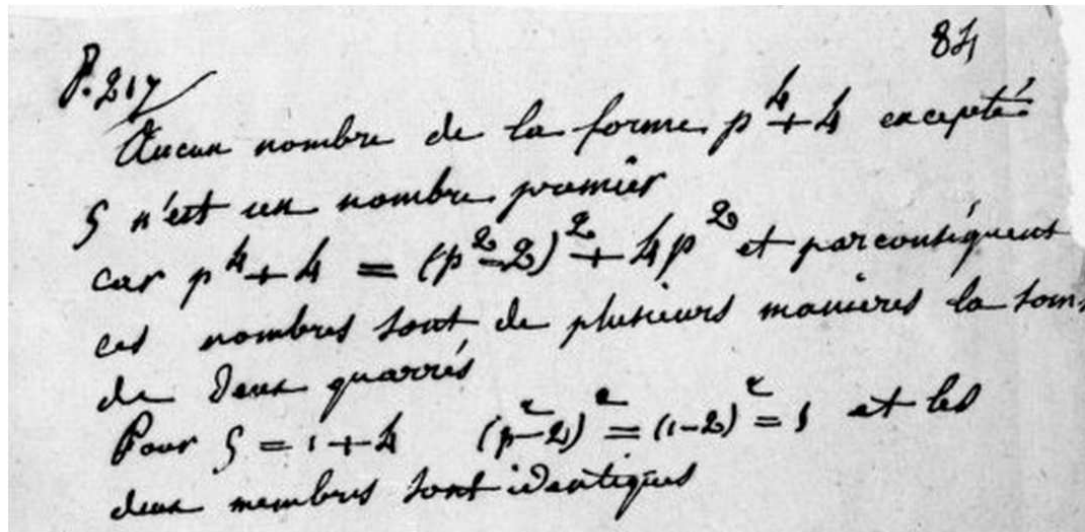 84
P. 217
Aucun nombre de la forme p⁴+4 excepté
5 n'est un nombre premier
car p⁴+4 = (p²-2)²+4p² et par conséquent
ces nombres sont de plusieurs manieres la som
de deux quarrés
Pour 5 = 1+4 (p²-2)² = (1-2)² = 1 et les
deux membres sont identiques